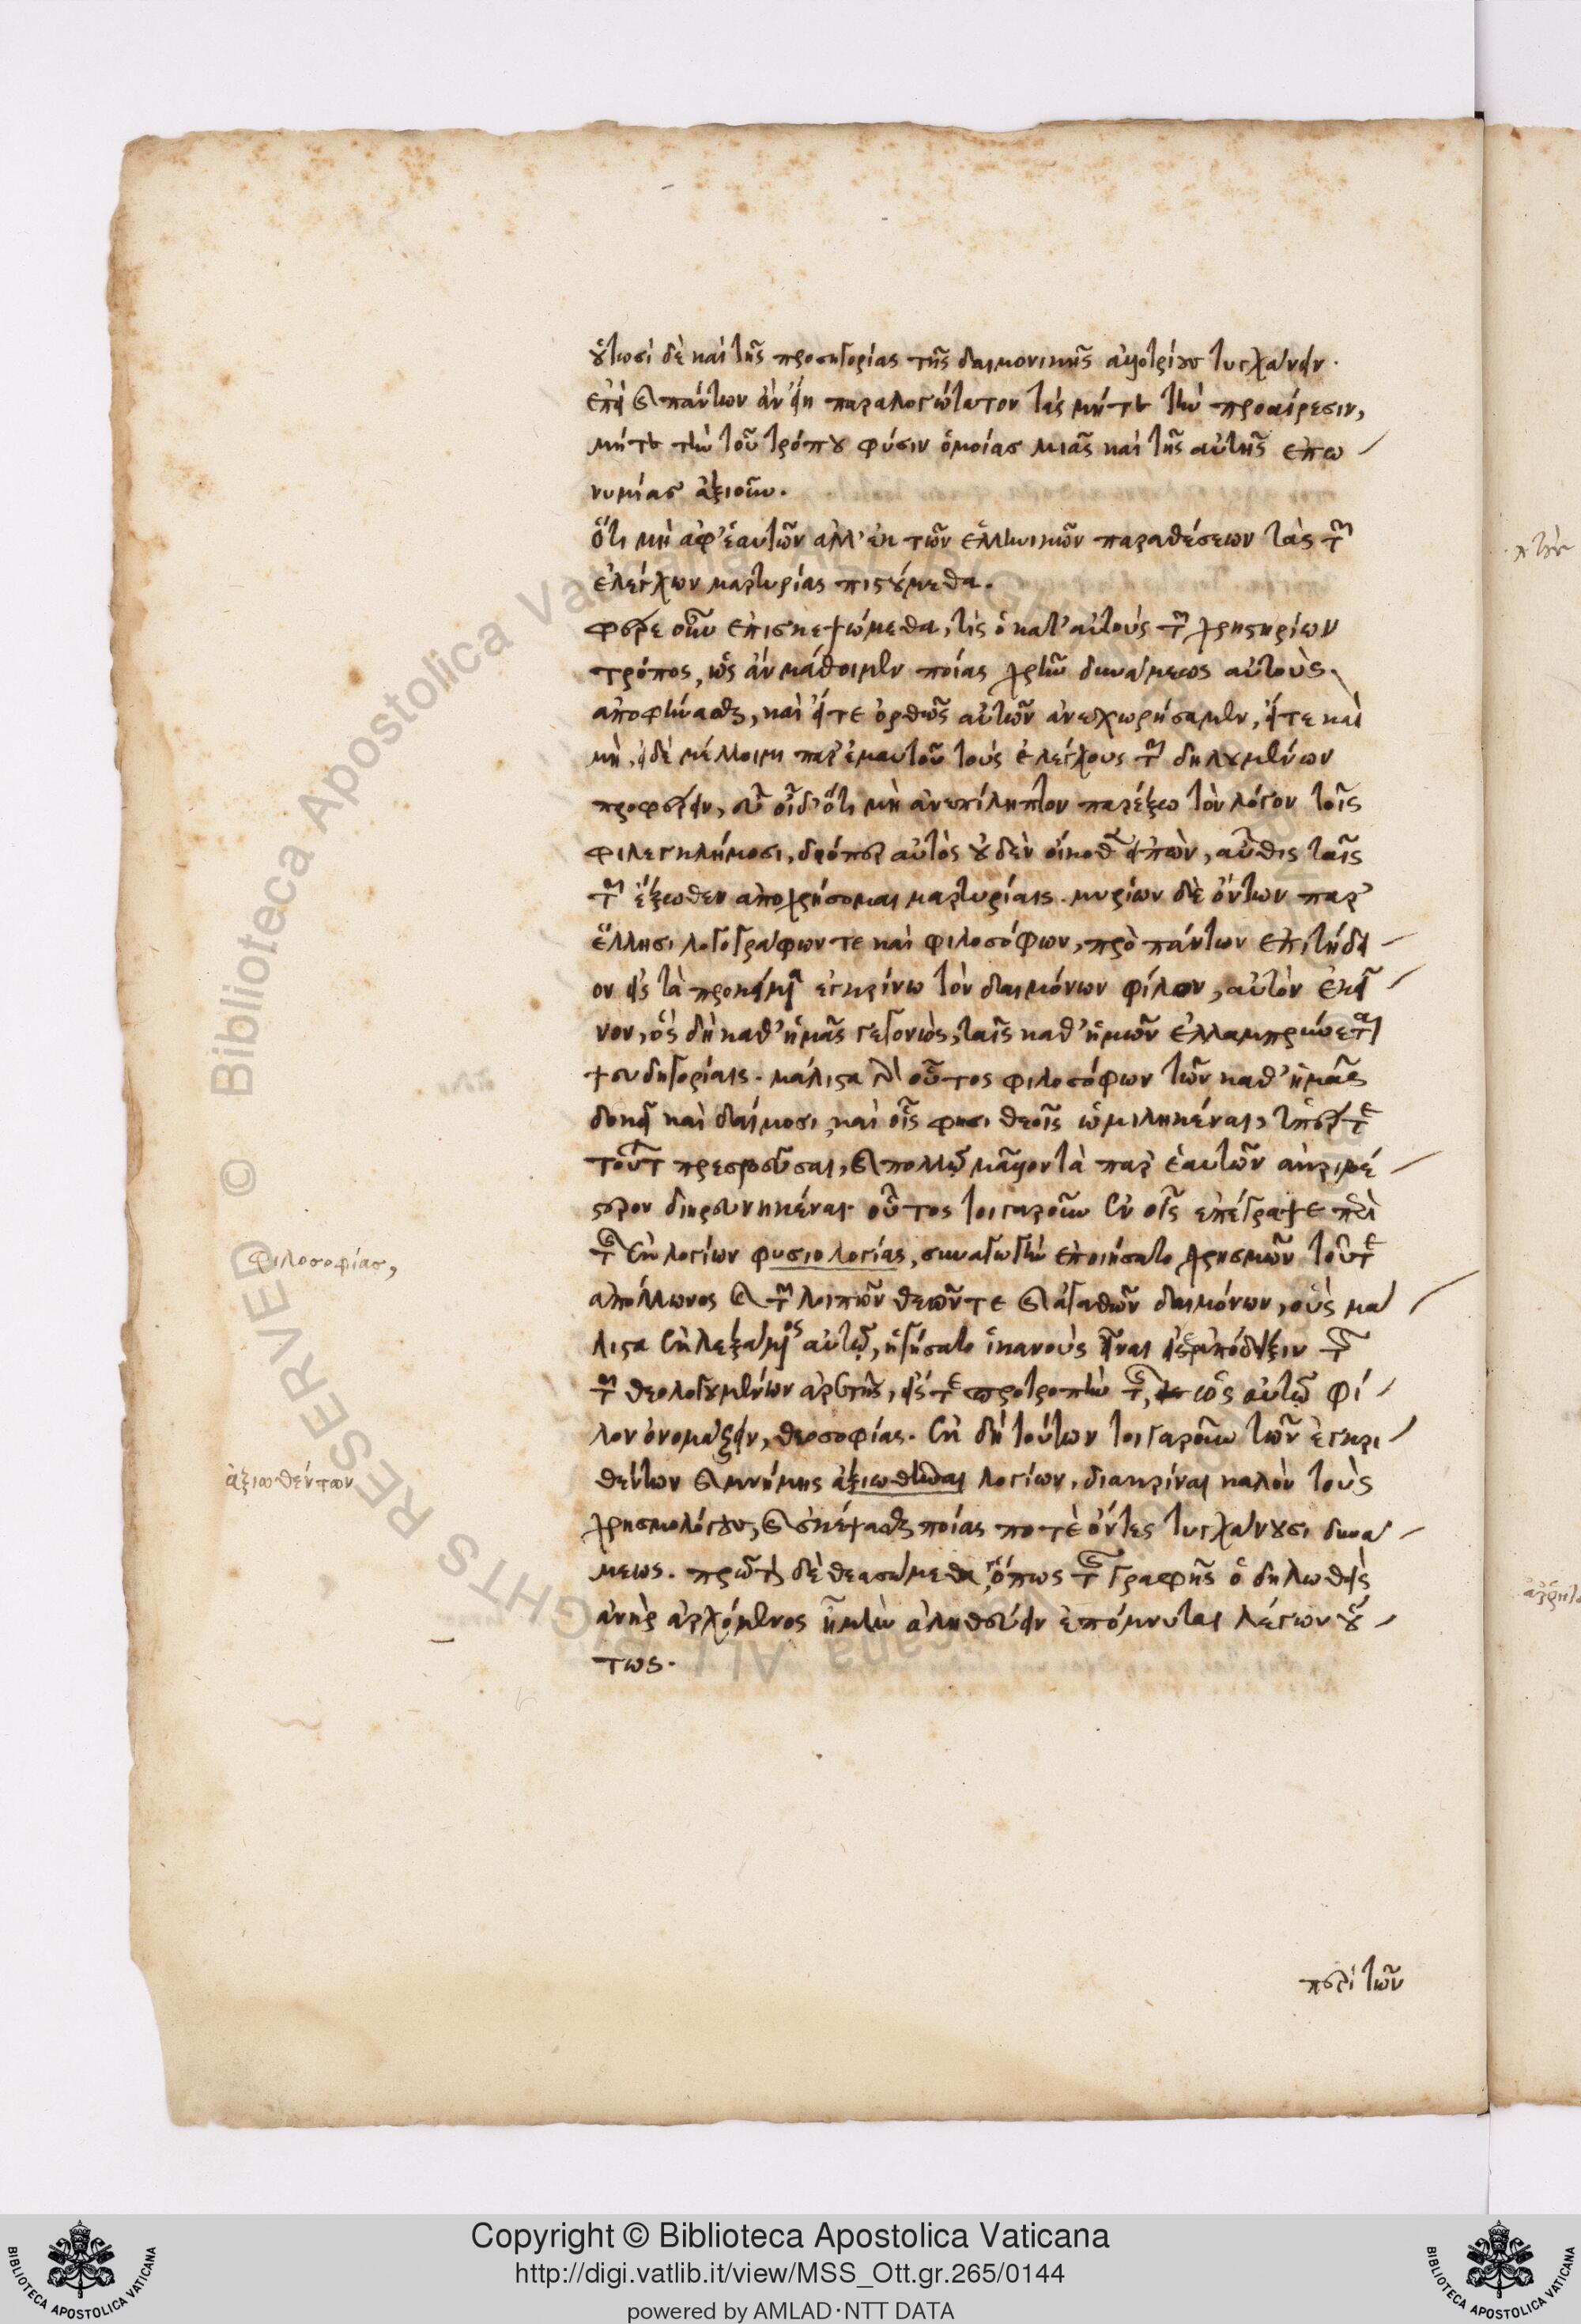 οὑτωσὶ δὲ καὶ τῆς προσηγορίας τῆς δαιμονικῆς ἀλλοτρίους τυγχάνειν.
ἐπεὶ καὶ πάντων ἂν εἴη παραλογώτατον τὰς μήτε τὴν προαίρεσιν,
μήτε τὴν τοῦ τρόπου φύσιν ὁμοίας μιᾶς καὶ τῆς αὐτῆς ἐπω
νυμίας ἀξιοῦν.
Ὅτι μὴ ἀφ' ἑαυτῶν ἀλλ' ἐκ τῶν ἑλληνικῶν παραθέσεων τὰς τῶν
ἐλέγχων μαρτυρίας πιστούμεθα.
φέρε οὖν ἐπισκεψώμεθα, τίς ὁ κατ' αὐτοὺς τῶν χρηστηρίων
τρόπος, ὡς ἂν μάθοιμεν ποίας χρὴν δυνάμεως αὐτοὺς
ἀποφήνασθαι, καὶ εἴτε ὀρθῶς αὐτῶν ἀνεχωρήσαμεν, εἴτε καὶ
μή. εἰ δὲ μέλλοιμι παρ' ἐμαυτοῦ τοὺς ἐλέγχους τῶν δηλουμένων
προφέρειν, εὖ οἶδ' ὅτι μὴ ἀνεπίληπτον παρέξω τὸν λόγον τοῖς
φιλεγκλήμοσι, διόπερ αὐτὸς οὐδὲν οἴκοθεν εἰπὼν, αὖθις ταῖς
τῶν ἔξωθεν ἀποχρήσομαι μαρτυρίαις. μυρίων δὲ ὄντων παρ'
ἕλλησι λογογράφων τε καὶ φιλοσόφων, πρὸ πάντων ἐπιτήδει
ον εἰς τὰ προκείμενα ἐγκρίνω τὸν δαιμόνων φίλον, αὐτὸν ἐκεῖ
νον, ὃς δὴ καθ' ἡμᾶς γεγονὼς, ταῖς καθ' ἡμῶν ἐλλαμπρύνεται
ψευδηγορίαις. μάλιστα γὰρ οὗτος φιλοσόφων τῶν καθ' ἡμᾶς
δοκεῖ καὶ δαίμοσι, καὶ οἷς φησι θεοῖς ὡμιληκέναι, ὑπέρ τε
τούτων πρεσβεῦσαι, καὶ πολλῷ μᾶλλον τὰ παρ' ἑαυτῶν ἀκριβέ
στερον διηρευνηκέναι. οὗτος τοιγαροῦν ἐν οἷς ἐπέγραψε περὶ
τῆς ἐκ λογίων φυσιολογίας, συναγωγὴν ἐποιήσατο χρησμῶν τοῦ τε
ἀπόλλωνος καὶ τῶν λοιπῶν θεῶν τε καὶ ἀγαθῶν δαιμόνων, οὓς μά
λιστα ἐκλεξάμενος αὐτῷ, ἡγήσατο ἱκανοὺς εἶναι εἴς τε ἀπόδειξιν τῆς
τῶν θεολογουμένων ἀρετῆς, εἴς τε προτροπὴν τῆς, ὡς αὐτῷ φί
λον ὀνομάζειν, θεοσοφίας. ἐκ δὴ τούτων τοιγαροῦν τῶν ἐγκρι
θέντων καὶ μνήμης ἀξιωθῆναι λογίων, διακρίναι καλὸν τοὺς
χρησμολόγους, καὶ σκέψασθαι ποίας ποτὲ ὄντες τυγχάνουσι δυνά
μεως. πρῶτον δὲ θεασώμεθα, ὅπως τῆς γραφῆς ὁ δηλωθεὶς
ἀνὴρ ἀρχόμενος ἦ μὴν ἀληθεύειν ἐπόμνυται λέγων οὕ
τως.
φιλοσοφίας,
ἀξιωθέντων
περὶ τῶν
Copyright © Biblioteca Apostolica Vaticana
http://digi.vatlib.it/view/MSS_Ott.gr.265/0144
powered by AMLAD·NTT DATA
© Biblioteca Apostolica Vaticana ALL RIGHTS RESERVED
BIBLIOTECA APOSTOLICA VATICANA
BIBLIOTECA APOSTOLICA VATICANA